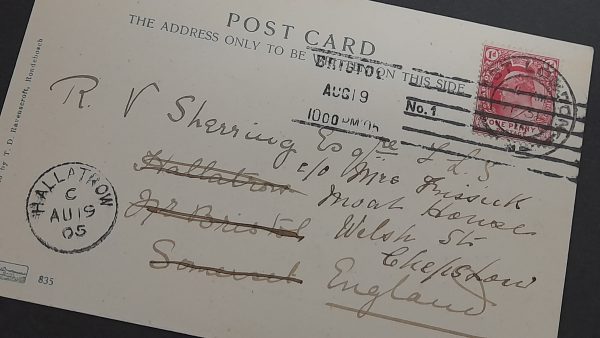 POST CARD
THE ADDRESS ONLY TO BE WRITTEN ON THIS SIDE
BRISTOL
AUG 19
1000 PM 05
No. 1
ONE PENNY
R V Sherring Esqre F.L.S
c/o Mrs
Hallatrow
Moat House
Nr Bristol
Welsh St
Chepstow
Somerset
England
HALLATROW
C
AU 19
05
by T. D. Ravenscroft, Rondebosch
835